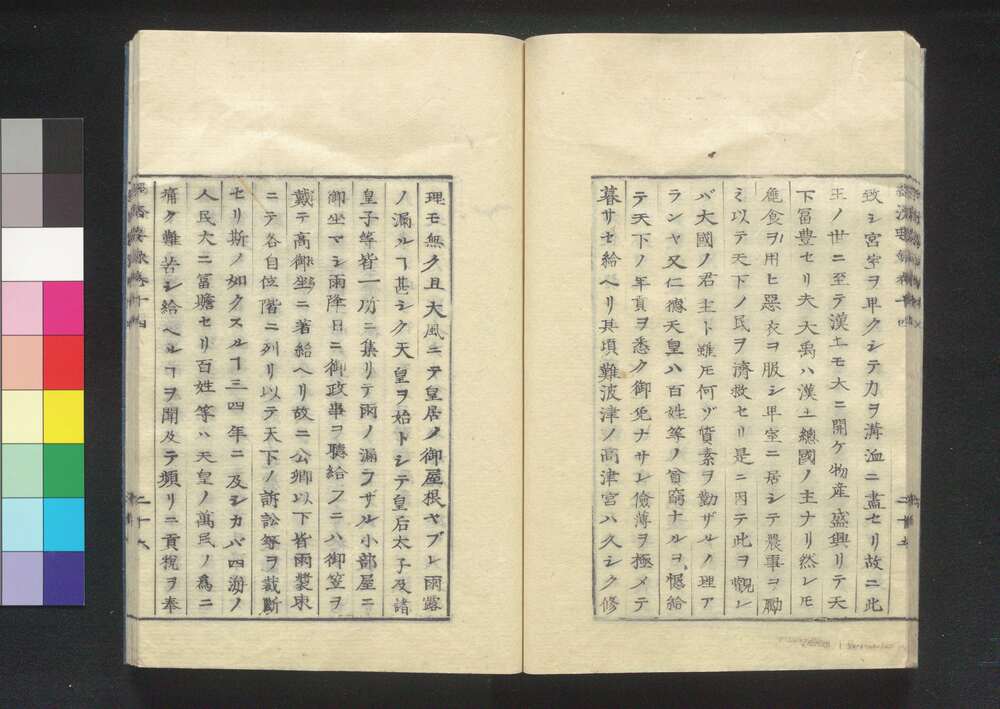 致シ宮室ヲ卑クシテ力ヲ溝洫ニ盡セリ故ニ此
王ノ世ニ至テ漢土モ大ニ開ケ物産盛興リテ天
下冨豊セリ夫大禹ハ漢土總國ノ主ナリ然レモ
麁食ヲ用ヒ惡衣ヲ服シ卑室ニ居シテ農事ヲ勵
ミ以テ天下ノ民ヲ濟救セリ是ニ因テ此ヲ觀レ
バ大國ノ君主ト雖𪜈何ゾ質素ヲ勤ザルノ理ア
ランヤ又仁德天皇ハ百姓等ノ貧窮ナルヲ愍給
テ天下ノ年貢ヲ悉ク御免ナサレ儉薄ヲ極メテ
暮サセ給ヘリ其頃難波津ノ高津宮ハ久シク修
理モ無ク且大風ニテ皇居ノ御屋根ヤブレ雨露
ノ漏ルヿ甚シク天皇ヲ始トシテ皇后太子及諸
皇子等皆一所ニ集リテ雨ノ漏ラザル小部屋ニ
御坐マシ雨降日ニ御政事ヲ聽給フニハ御笠ヲ
戴テ高御坐ニ著給ヘリ故ニ公卿以下皆雨裝束
ニテ各自位階ニ列リ以テ天下ノ訴訟等ヲ裁斷
セリ斯ノ如クスルヿ三四年ニ及シカバ四海ノ
人民大ニ冨贍セリ百姓等ハ天皇ノ萬民ノ爲ニ
痛ク難苦シ給ヘルヿヲ聞及テ頻リニ貢税ヲ奉